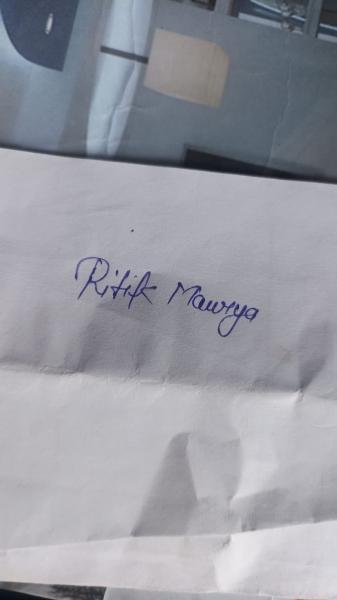 Ritik Maurya